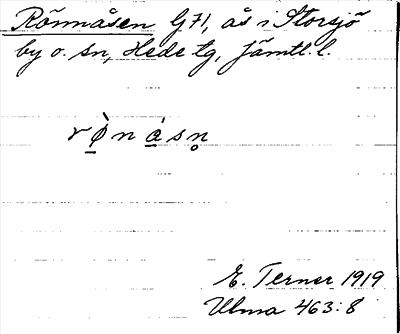 Rönnåsen G71, ås i Storsjö
by o. sn, Hede tg, Jämtl. l.
rø̱̀ná̱sn̥
E. Terner 1919
Ulma 463:8